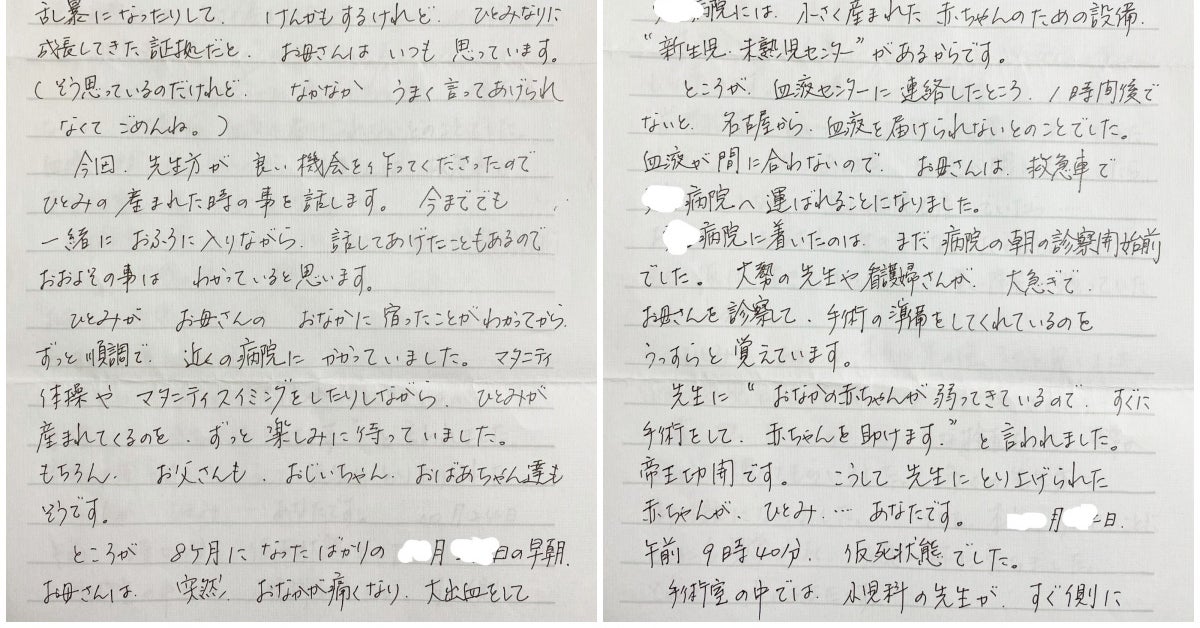 乱暴になったりして、けんかもするけれど、ひとみなりに
成長してきた証拠だと、お母さんは いつも 思っています。
(そう思っているのだけれど、なかなか うまく言ってあげられ
なくて ごめんね。)
今回、先生方が 良い機会を作ってくださったので
ひとみの 産まれた時の事を話します。今まででも
一緒に おふろに入りながら、話してあげたこともあるので
おおよその事は わかっていると思います。
ひとみが お母さんの おなかに宿ったことがわかってから、
ずっと順調で、近くの病院に かかっていました。マタニティ
体操や マタニティスイミングをしたりしながら、ひとみが
産まれてくるのを、ずっと楽しみに待っていました。
もちろん、お父さんも、おじいちゃん、おばあちゃん達も
そうです。
ところが 8ケ月に なったばかりの 月 日の早朝、
お母さんは、突然、おなかが痛くなり、大出血をして
病院には、小さく産まれた 赤ちゃんのための設備、
"新生児・未熟児センター"があるからです。
ところが、血液センターに連絡したところ、1時間後で
ないと、名古屋から、血液を届けられないとのことでした。
血液が間に合わないので、お母さんは、救急車で
病院へ 運ばれることになりました。
病院に着いたのは、まだ 病院の朝の診察開始前
でした。大勢の先生や看護婦さんが、大急ぎで、
お母さんを診察して、手術の準備をしてくれているのを
うっすらと 覚えています。
先生に "おなかの赤ちゃんが弱ってきているので、すぐに
手術をして、赤ちゃんを助けます。"と言われました。
帝王切開です。こうして 先生にとり上げられた
赤ちゃんが、ひとみ、… あなたです。 月 日、
午前 9時40分、仮死状態でした。
手術室の中では、小児科の先生が、すぐ側に